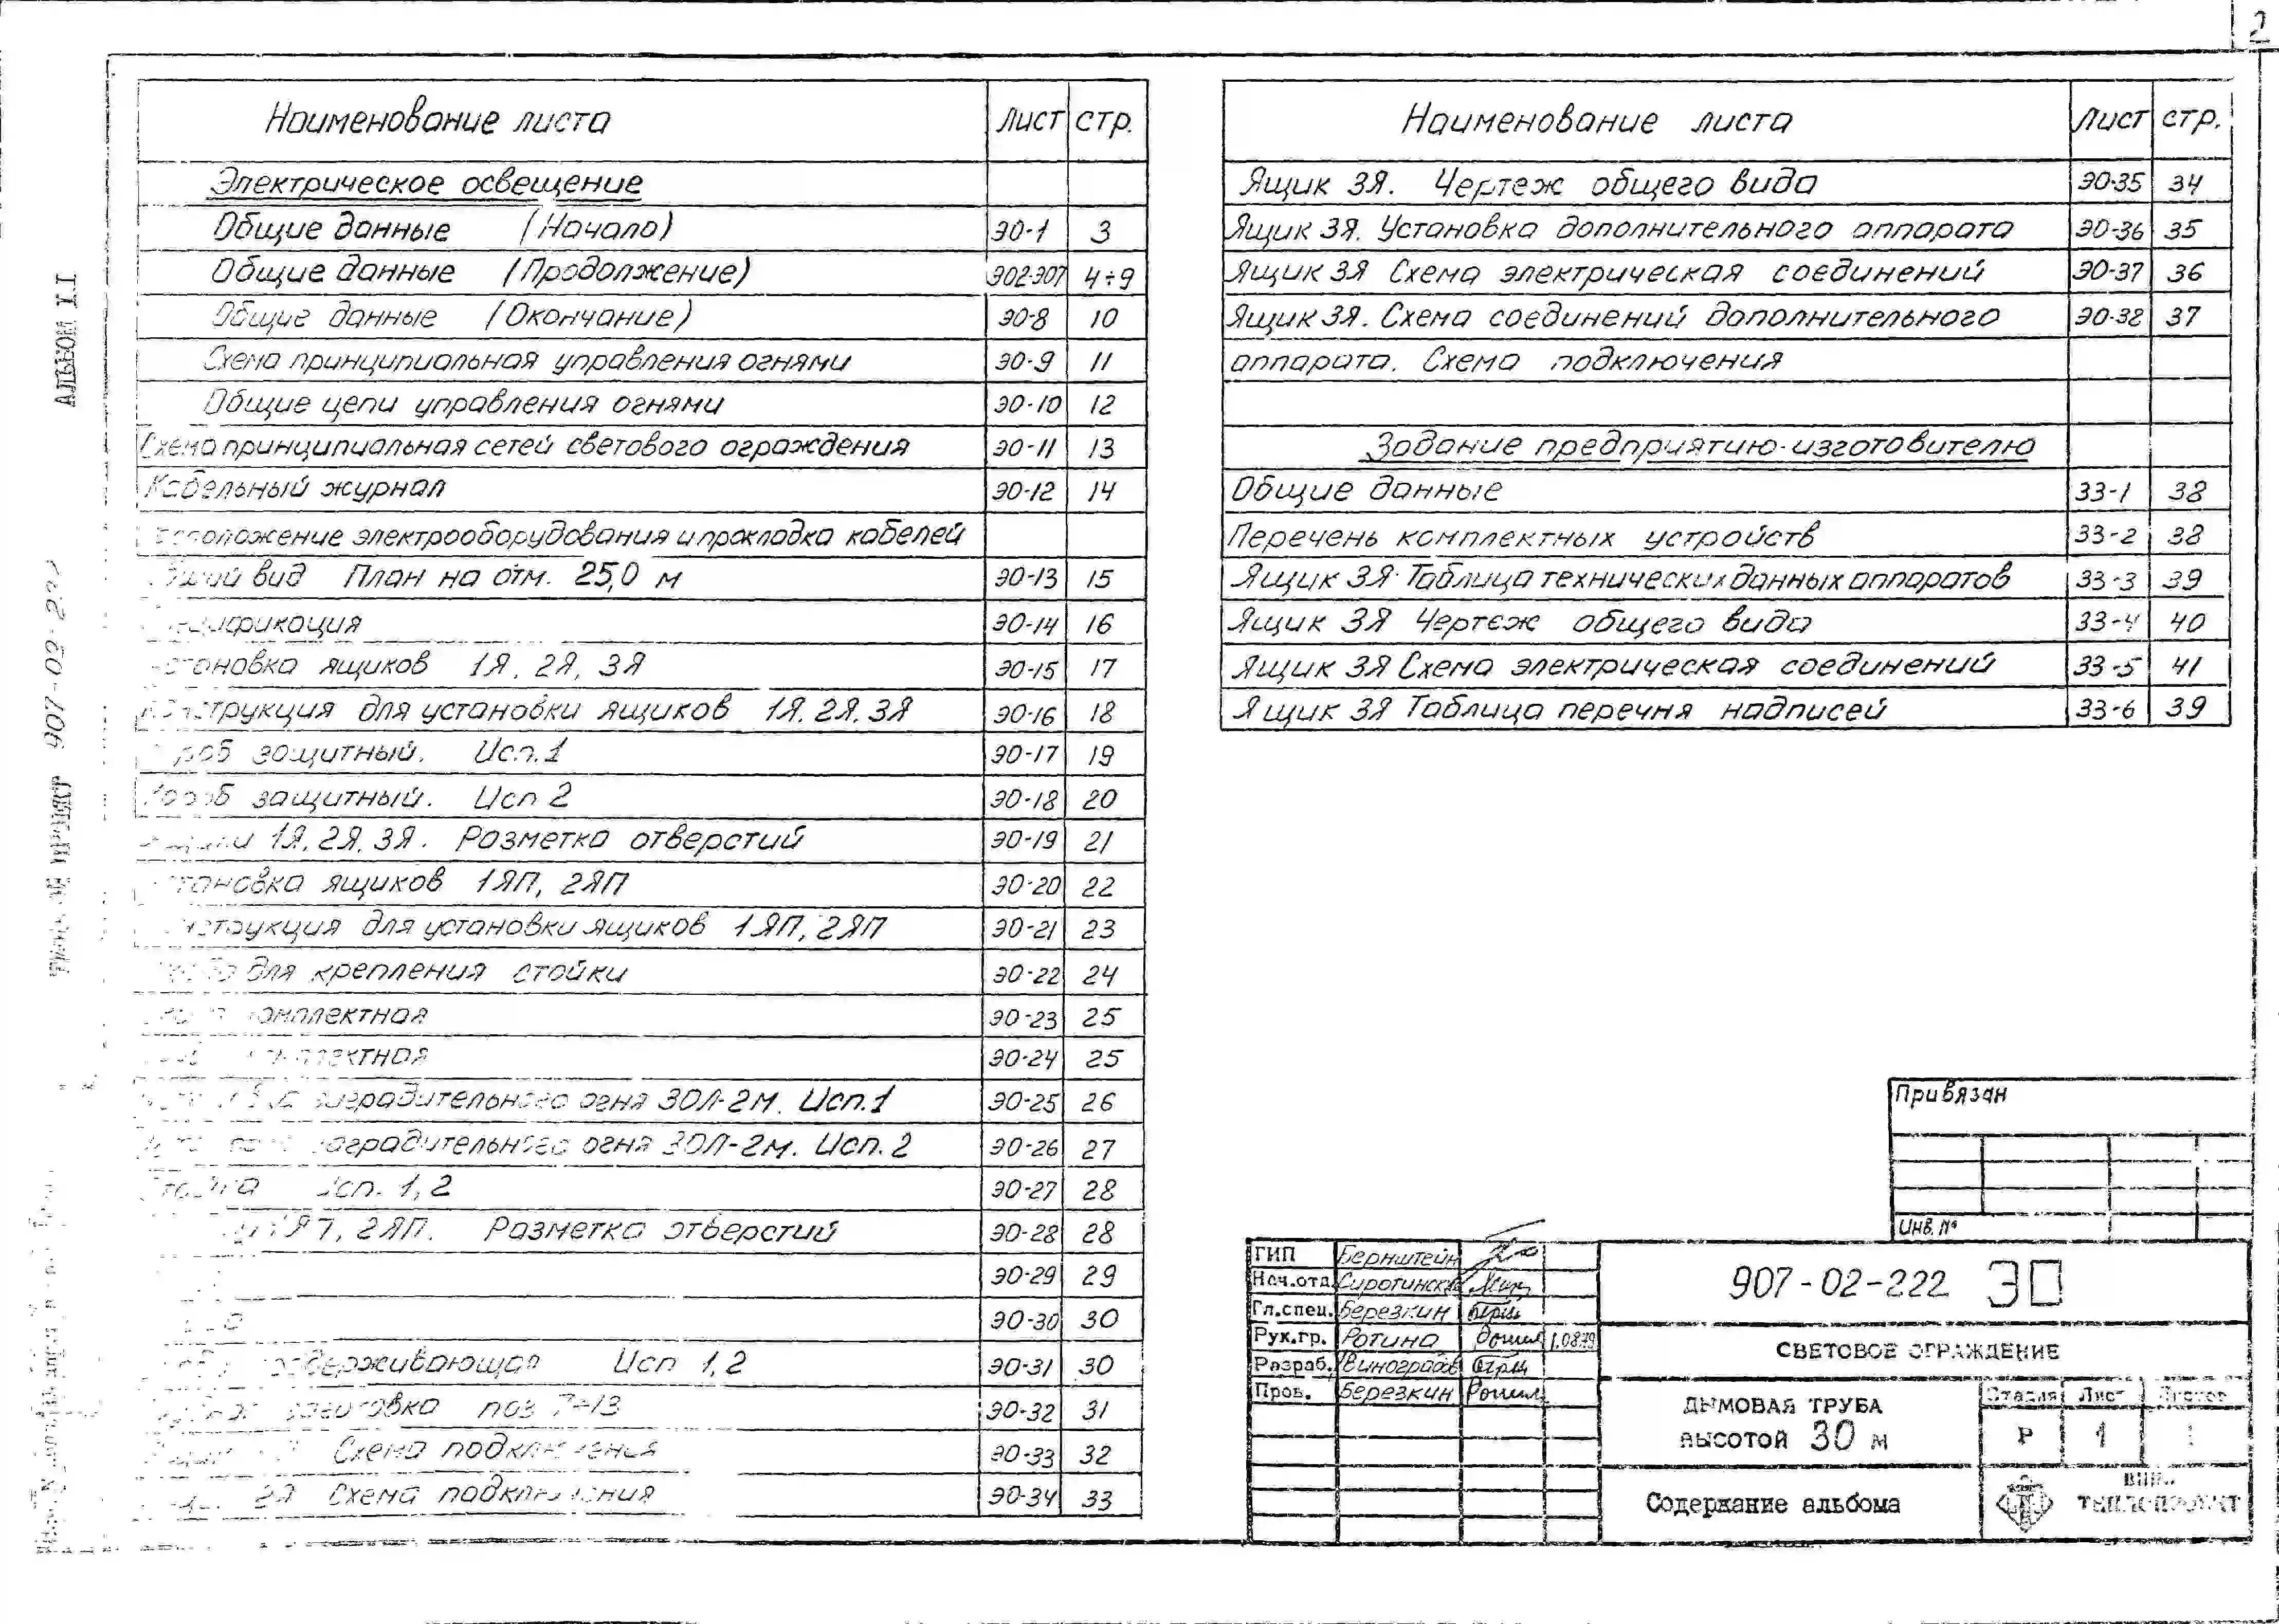 2
АЛЬБОМ II
907-02-222
Наименование листа Лист стр.
Электрическое освещение
Общие данные (Начало) ЭО-1 3
Общие данные (Продолжение) ЭО2-ЭО7 4÷9
Общие данные (Окончание) ЭО-8 10
Схема принципиальная управления огнями ЭО-9 11
Общие цепи управления огнями ЭО-10 12
Схема принципиальная сетей светового ограждения ЭО-11 13
Кабельный журнал ЭО-12 14
Расположение электрооборудования и прокладка кабелей
Общий вид План на отм. 25,0 м ЭО-13 15
Спецификация ЭО-14 16
Установка ящиков 1Я, 2Я, 3Я ЭО-15 17
Конструкция для установки ящиков 1Я, 2Я, 3Я ЭО-16 18
Короб защитный. Исп.1 ЭО-17 19
Короб защитный. Исп 2 ЭО-18 20
Ящики 1Я, 2Я, 3Я. Разметка отверстий ЭО-19 21
Установка ящиков 1ЯП, 2ЯП ЭО-20 22
Конструкция для установки ящиков 1ЯП, 2ЯП ЭО-21 23
для крепления стойки ЭО-22 24
комплектная ЭО-23 25
комплектная ЭО-24 25
Установка заградительного огня ЗОЛ-2м. Исп.1 ЭО-25 26
Установка заградительного огня ЗОЛ-2м. Исп.2 ЭО-26 27
Стойка Исп. 1, 2 ЭО-27 28
1ЯП, 2ЯП. Разметка отверстий ЭО-28 28
ЭО-29 29
ЭО-30 30
поддерживающая Исп 1, 2 ЭО-31 30
заготовка поз 7÷13 ЭО-32 31
Схема подключения ЭО-33 32
2Я Схема подключения ЭО-34 33
Наименование листа Лист стр.
Ящик 3Я. Чертеж общего вида ЭО-35 34
Ящик 3Я. Установка дополнительного аппарата ЭО-36 35
Ящик 3Я Схема электрическая соединений ЭО-37 36
Ящик 3Я. Схема соединений дополнительного ЭО-38 37
аппарата. Схема подключения
Задание предприятию-изготовителю
Общие данные ЗЗ-1 38
Перечень комплектных устройств ЗЗ-2 38
Ящик 3Я Таблица технических данных аппаратов ЗЗ-3 39
Ящик 3Я Чертеж общего вида ЗЗ-4 40
Ящик 3Я Схема электрическая соединений ЗЗ-5 41
Ящик 3Я Таблица перечня надписей ЗЗ-6 39
Привязан
Инв. №
ГИП Бернштейн
Нач.отд. Сиротинский
Гл.спец. Березкин
Рук.гр. Ротина
Разраб. Виноградов
Пров. Березкин
907-02-222 ЭО
СВЕТОВОЕ ОГРАЖДЕНИЕ
ДЫМОВАЯ ТРУБА
ВЫСОТОЙ 30 м
Стадия Лист Листов
Р 1 1
Содержание альбома
ТЕПЛОПРОЕКТ